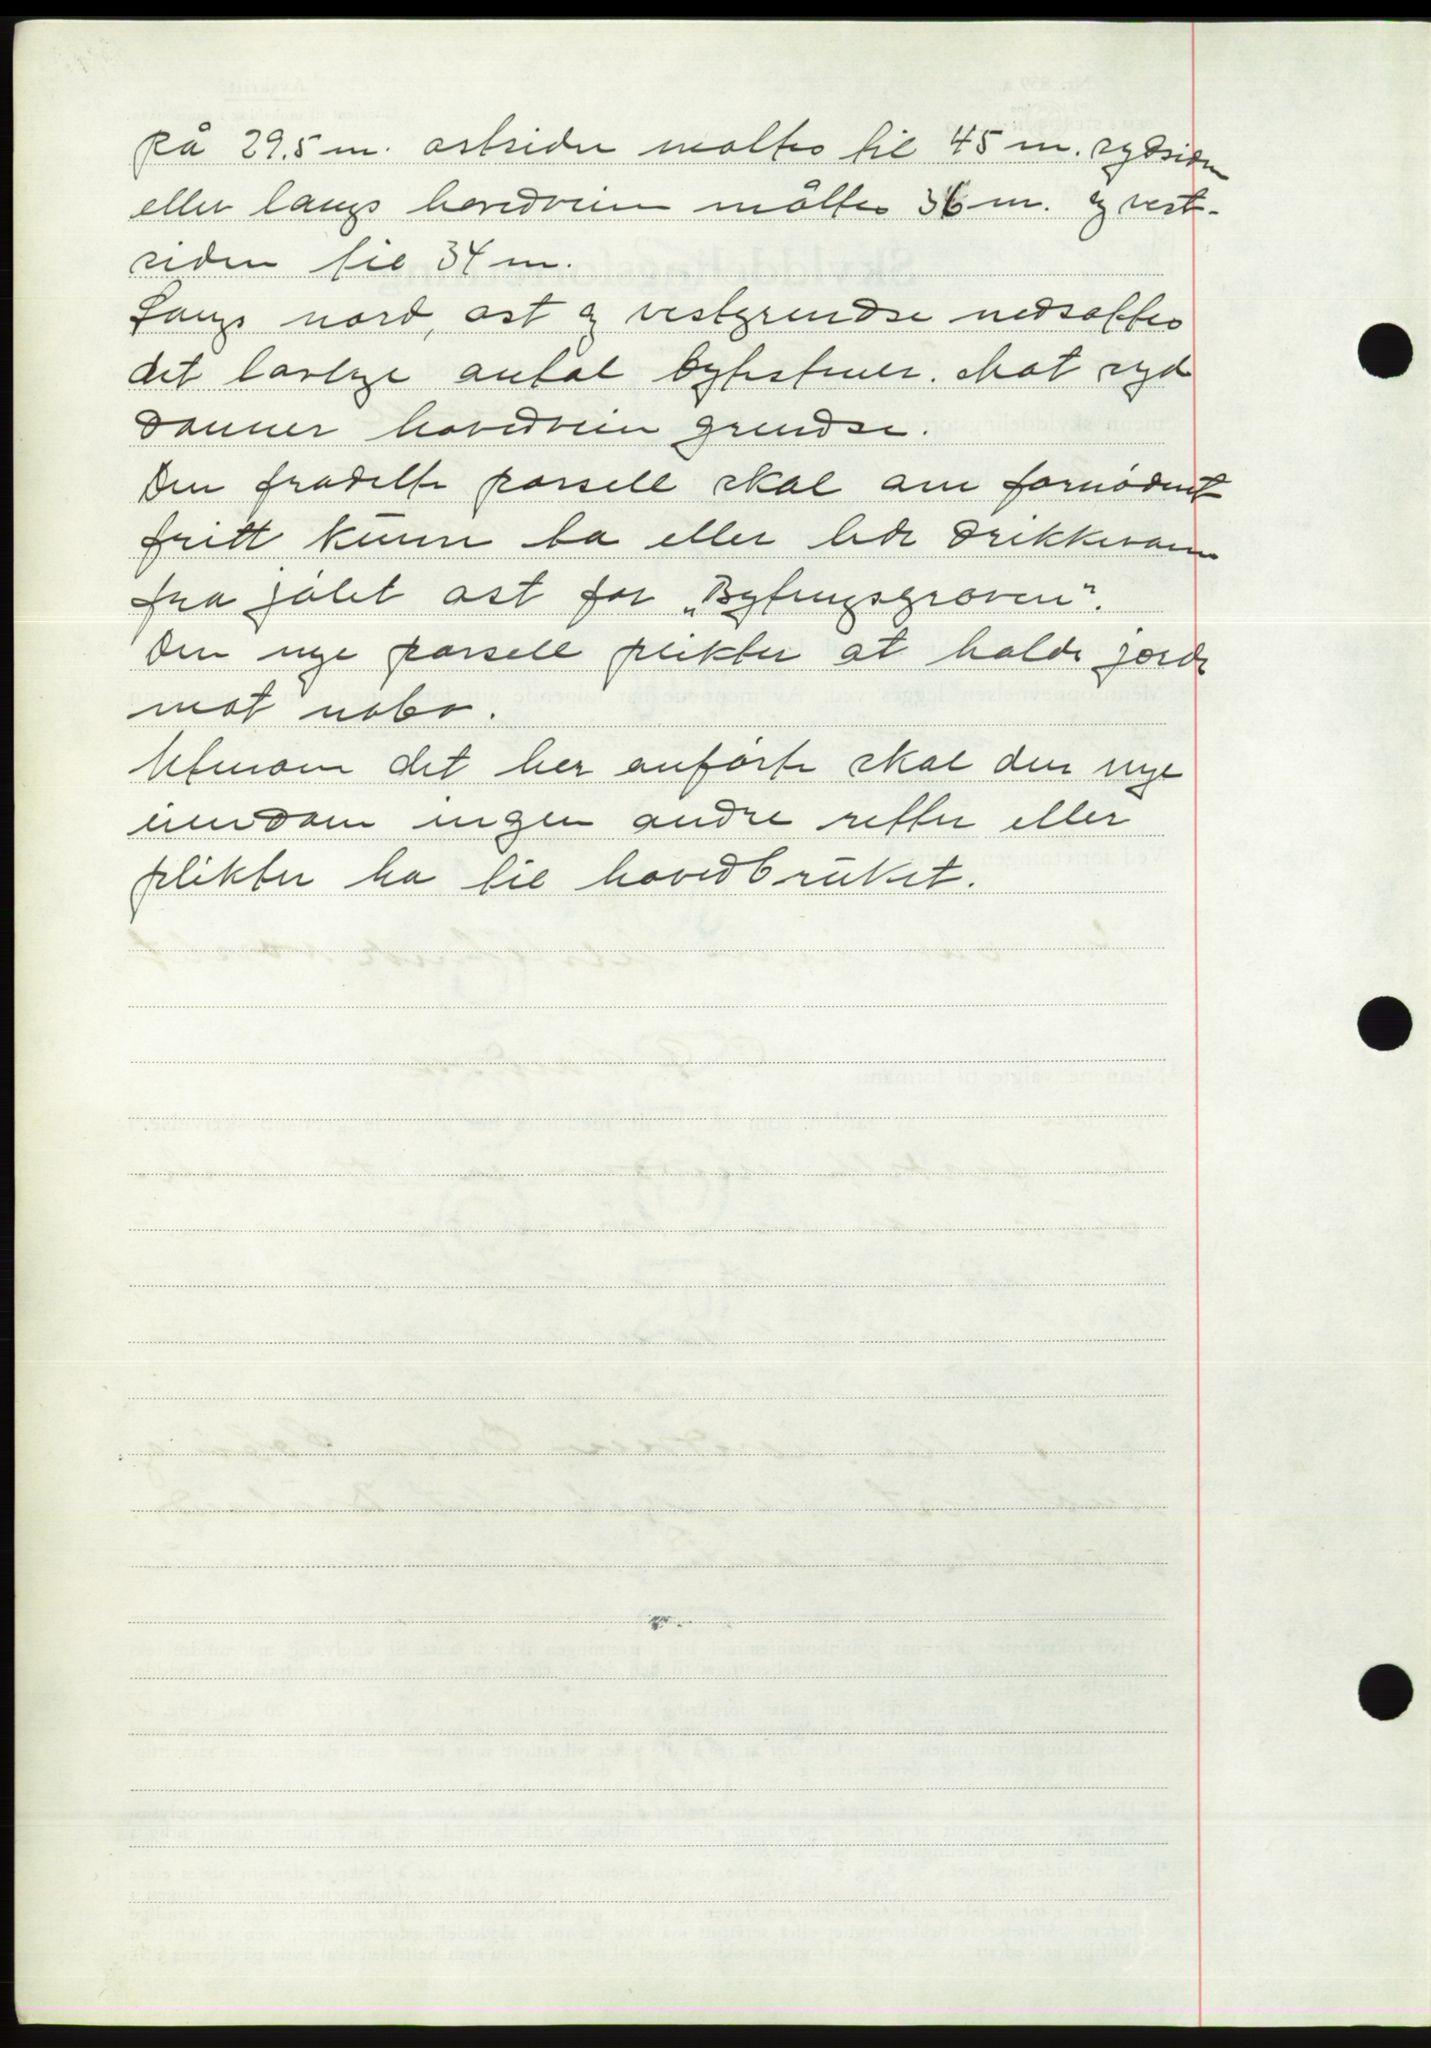 på 29.5 m. østsiden moltes til 45 m. sydsiden
eller langs hovedveien måltes 36 m. og vest-
siden til 34 m.
Langs nord, øst og vestgrendse nedsattes
det lovlige antal bytestener. Mot syd
danner hovedveien grendse.
Den fradelte parsell skal om fornødent
fritt kunne ta eller lede drikkevann
fra jølet øst for „Bytingsgroven".
Den nye parsell plikter at holde jerde
mot nabo.
Utenom det her anførte skal den nye
eiendom ingen andre retter eller
plikter ha til hovedbruket.